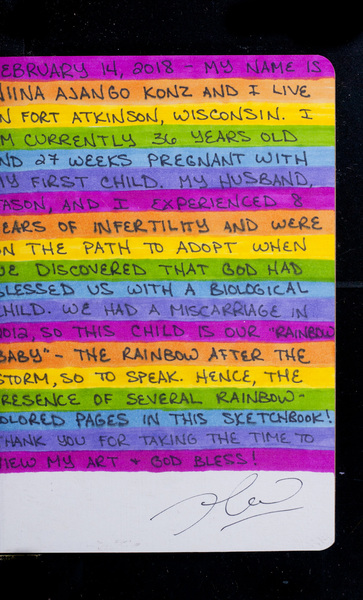 EBRUARY 14, 2018 - MY NAME IS
NIINA AJANGO KONZ AND I LIVE
N FORT ATKINSON, WISCONSIN. I
M CURRENTLY 36 YEARS OLD
ND 27 WEEKS PREGNANT WITH
MY FIRST CHILD. MY HUSBAND,
JASON, AND I EXPERIENCED 8
EARS OF INFERTILITY AND WERE
ON THE PATH TO ADOPT WHEN
WE DISCOVERED THAT GOD HAD
BLESSED US WITH A BIOLOGICAL
CHILD. WE HAD A MISCARRIAGE IN
2012, SO THIS CHILD IS OUR "RAINBOW
BABY" - THE RAINBOW AFTER THE
STORM, SO TO SPEAK. HENCE, THE
RESENCE OF SEVERAL RAINBOW-
OLORED PAGES IN THIS SKETCHBOOK!
THANK YOU FOR TAKING THE TIME TO
VIEW MY ART + GOD BLESS!